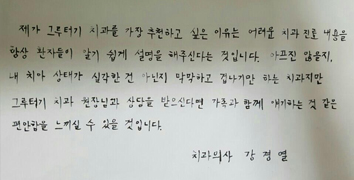 제가 그루터기 치과를 가장 추천하고 싶은 이유는 어려운 치과 진료 내용을
항상 환자들이 알기 쉽게 설명을 해주신다는 것입니다. 아프진 않을지,
내 치아 상태가 심각한 건 아닌지 막막하고 겁나기만 하는 치과지만
그루터기 치과 원장님과 상담을 받으신다면 가족과 함께 얘기하는 것 같은
편안함을 느끼실 수 있을 것입니다.
치과의사 강경열